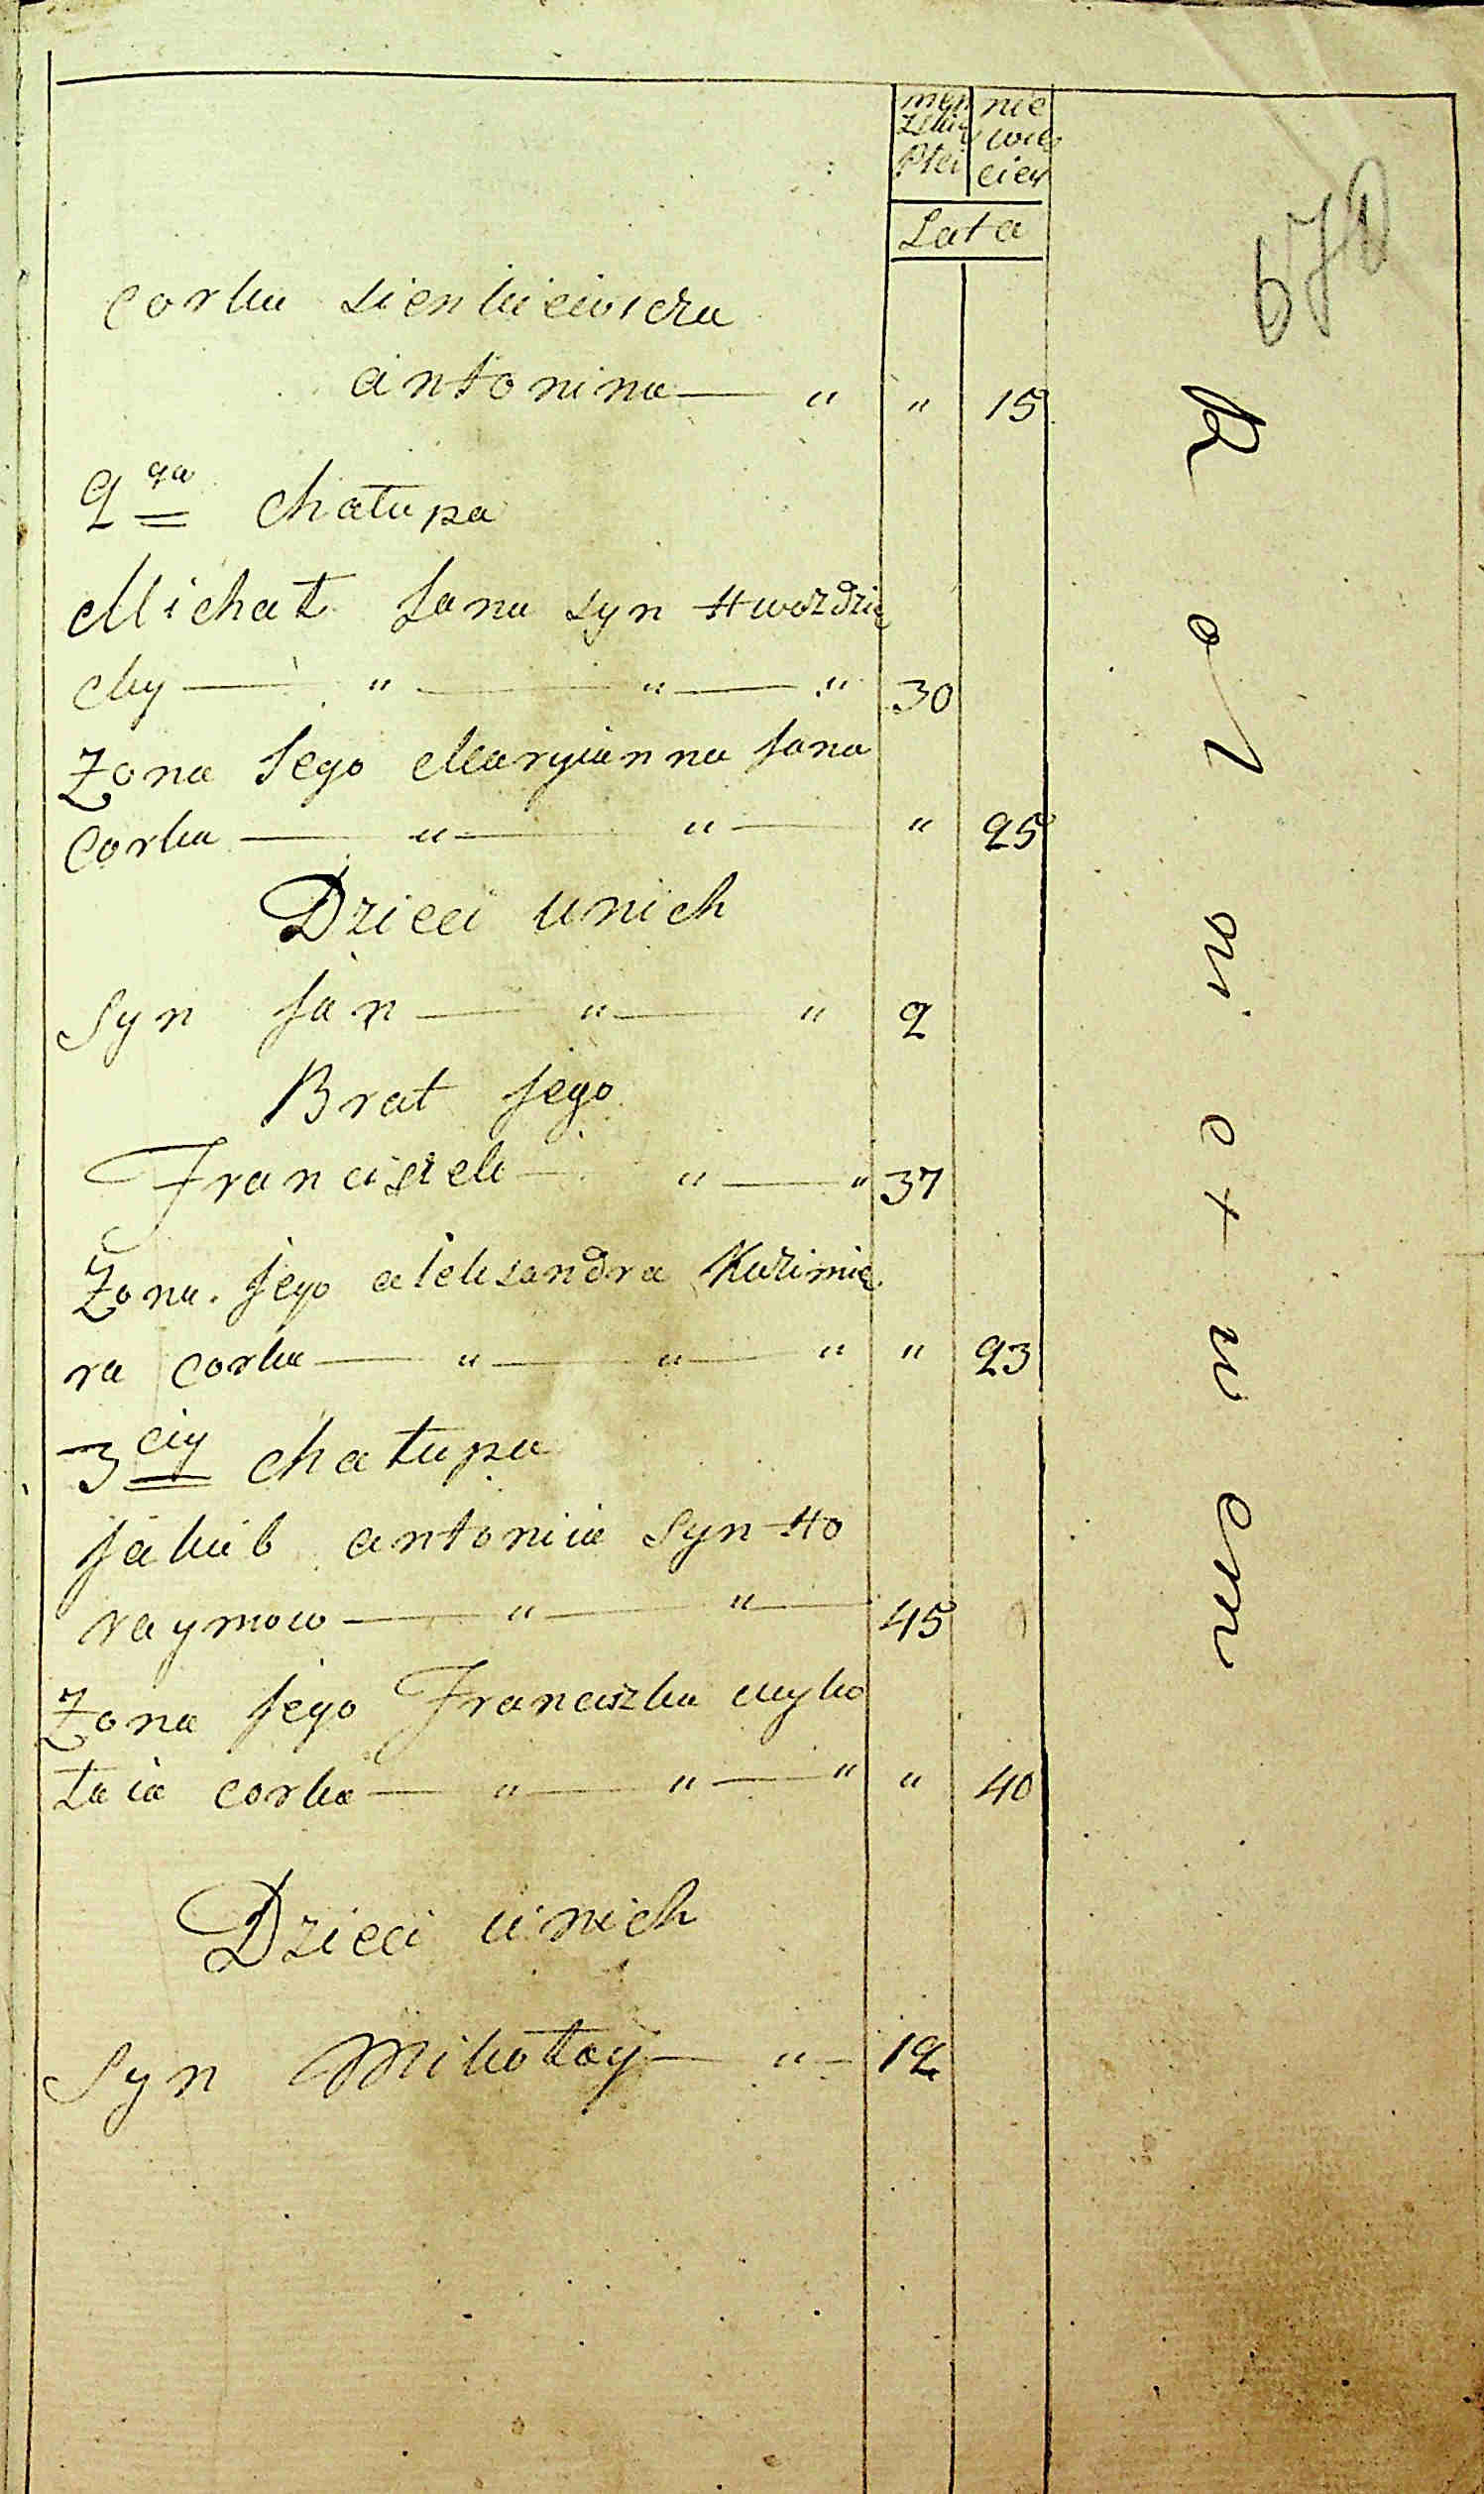 męn nie
zkiey wie
Płci ciey
Lata
Corka Sienkiewicza
antonina — " " 15
2ga Chałupa
Michał Jana syn Hwozdzie
cky — " — " — " 30
Zona Jego Maryianna Jana
Corka — " — " — " 25
Dzieci unich
Syn Jan — " — " 2
Brat Jego
Franciszek — " — " 37
Zona Jego alexsandra Kazimie
ra Corka — " — " — " " 23
3cia Chałupa
Jakub antonia Syn Ho
raymow — " — " — 45
Zona Jego Franciszka Myko
łaia corka — " — " — " " 40
Dzieci unich
Syn Mikołay — " — 12